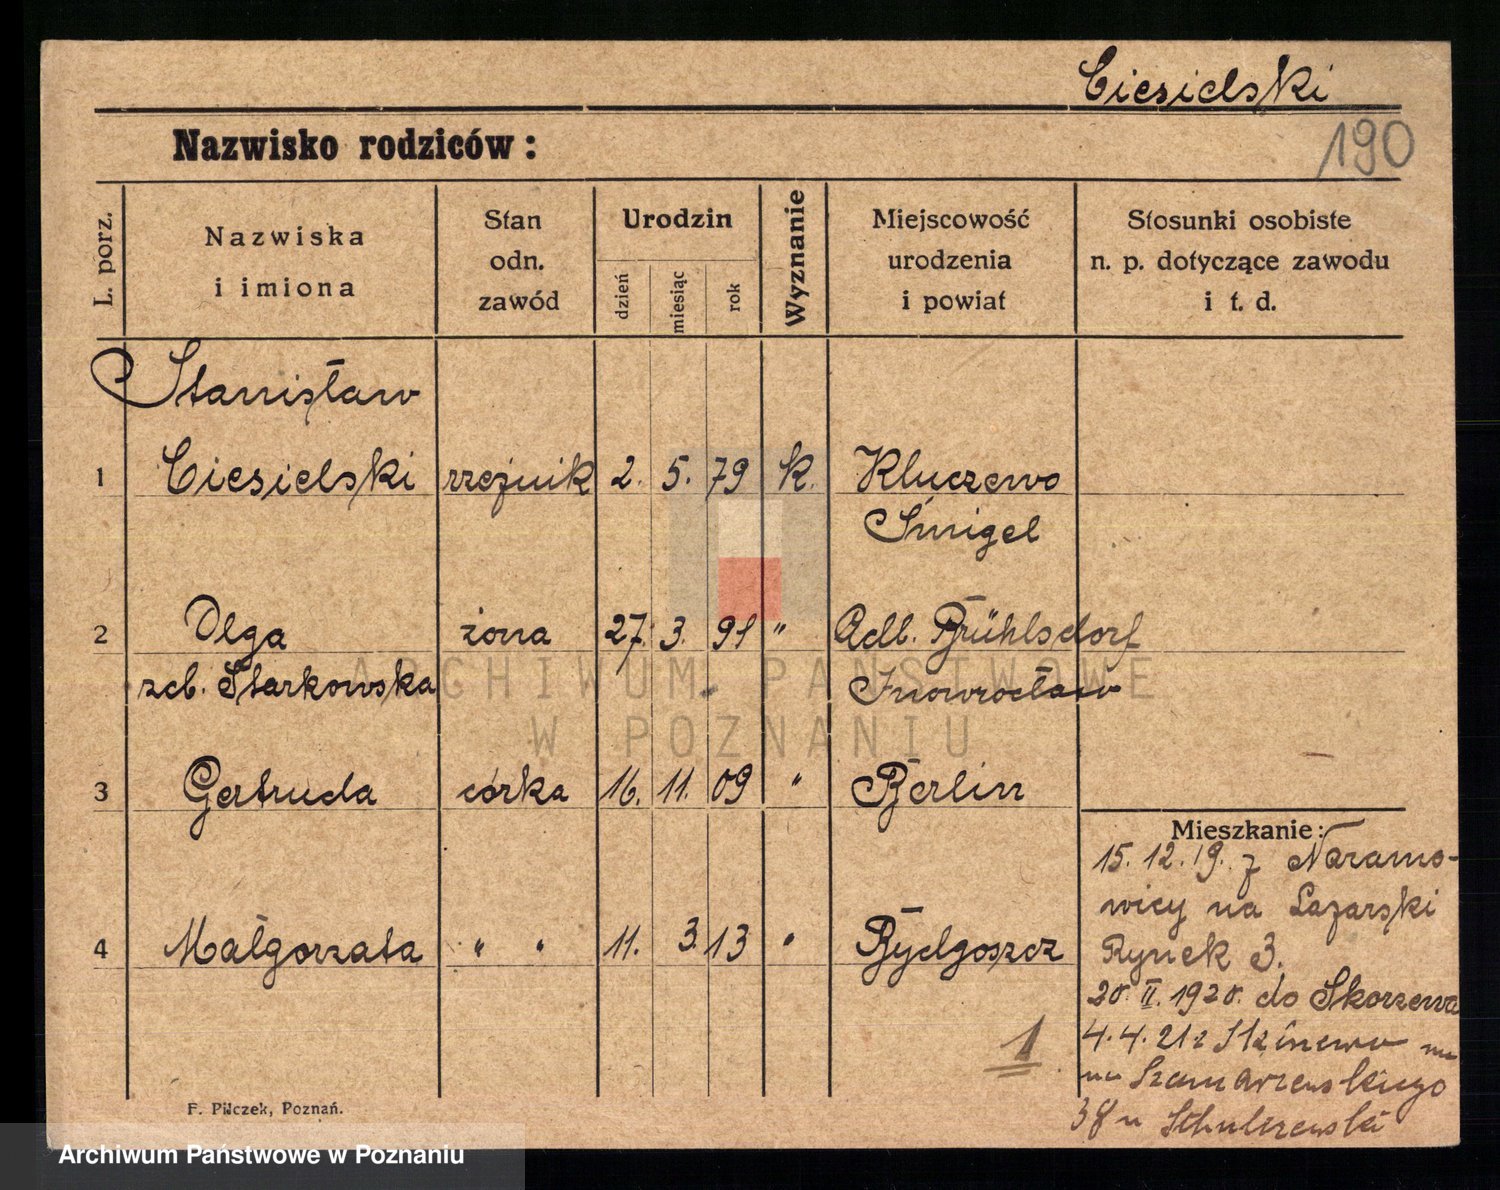 Ciesielski
190
Nazwisko rodziców:
L. porz.
Nazwiska
i imiona
Stan
odn.
zawód
Urodzin
dzień
miesiąc
rok
Wyznanie
Miejscowość
urodzenia
i powiat
Stosunki osobiste
n. p. dotyczące zawodu
i t. d.
Stanisław
1 Ciesielski rzeźnik 2. 5. 79 k. Kluczewo
Śmigel
2 Olga żona 27. 3. 91 " Adl. Brühlsdorf
zcb. Starkowska Inowrocław
3 Gertruda córka 16. 11. 09 " Berlin
4 Małgorzata " " 11. 3. 13 " Bydgoszcz
Mieszkanie:
15. 12. 19. z Naramo-
wicy na Lazarski
Rynek 3.
20. II. 1920. do Skorzewa
4. 4. 21 z
Szamarzewskiego
38 u
1
F. Pilczek, Poznań.
ARCHIWUM PAŃSTWOWE
W POZNANIU
Archiwum Państwowe w Poznaniu